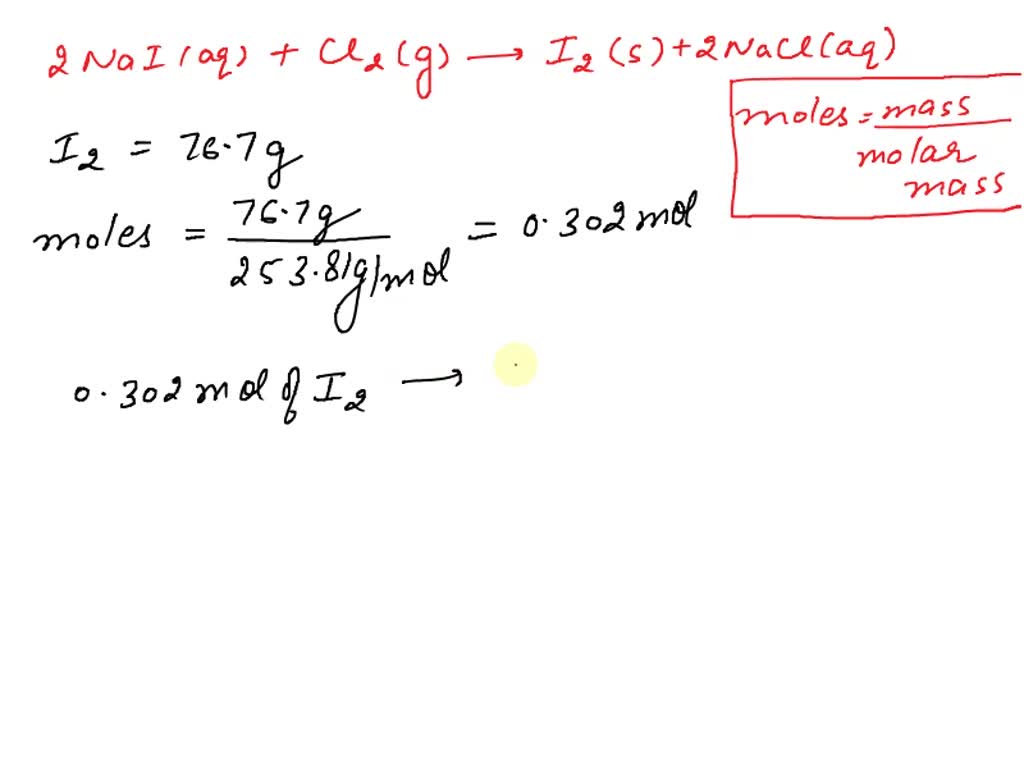 2NaI(aq) + Cl2(g) → I2(s) + 2NaCl(aq)
moles = mass
molar
mass
I2 = 76.7g
moles = 76.7g / 253.81g/mol = 0.302 mol
0.302 mol of I2 →